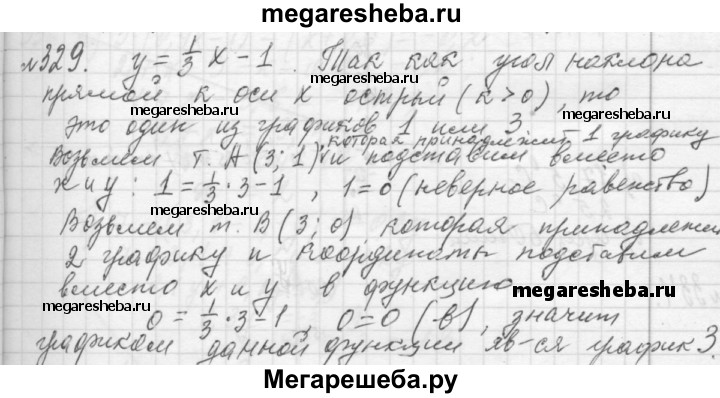 megaresheba.ru
№329. y = 1/3 x − 1. Так как угол наклона
megaresheba.ru megaresheba.ru
прямой к оси x острый (к > 0), то
это один из графиков 1 или 3.
которая принадлежит 1 графику
Возьмем т. A (3; 1) и подставим вместо
megaresheba.ru
x и y: 1 = 1/3 · 3 − 1, 1 = 0 (неверное равенство)
megaresheba.ru
Возьмем т. B (3; 0), которая принадлежит
2 графику и координаты подставим
вместо x и y в функцию
megaresheba.ru megaresheba.ru
0 = 1/3 · 3 − 1, 0 = 0 (в), значит
графиком данной функции яв-ся график 3.
Мегарешеба.ру